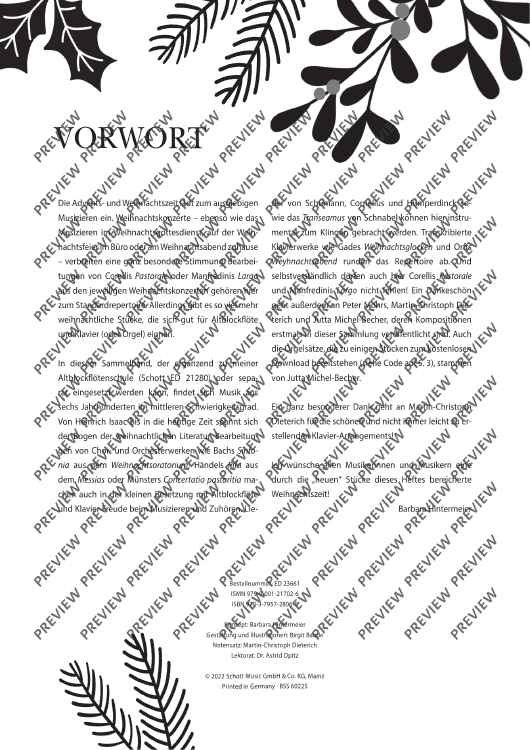 VORWORT
Die Advents- und Weihnachtszeit lädt zum ausgiebigen
Musizieren ein. Weihnachtskonzerte – ebenso wie das
Musizieren im Weihnachtsgottesdienst, auf der Weih-
nachtsfeier im Büro oder am Weihnachtsabend zuhause
– verbreiten eine ganz besondere Stimmung. Bearbei-
tungen von Corellis Pastorale oder Manfredinis Largo
aus den jeweiligen Weihnachtskonzerten gehören hier
zum Standardrepertoire. Allerdings gibt es so viel mehr
weihnachtliche Stücke, die sich gut für Altblockflöte
und Klavier (oder Orgel) eignen.
In diesem Sammelband, der ergänzend zu meiner
Altblockflötenschule (Schott ED 21280) oder sepa-
rat eingesetzt werden kann, findet sich Musik aus
sechs Jahrhunderten im mittleren Schwierigkeitsgrad.
Von Heinrich Isaac bis in die heutige Zeit spannt sich
der Bogen der weihnachtlichen Literatur. Bearbeitun-
gen von Chor- und Orchesterwerken wie Bachs Sinfo-
nia aus dem Weihnachtsoratorium, Händels Pifa aus
dem Messias oder Münsters Concertatio pastoritia ma-
chen auch in der kleinen Besetzung mit Altblockflöte
und Klavier Freude beim Musizieren und Zuhören. Lie-
der von Schumann, Cornelius und Humperdinck so-
wie das Transeamus von Schnabel können hier instru-
mental zum Klingen gebracht werden. Transkribierte
Klavierwerke wie Gades Weihnachtsglocken und Orths
Weihnachtsabend runden das Repertoire ab. Und
selbstverständlich dürfen auch hier Corellis Pastorale
und Manfredinis Largo nicht fehlen! Ein Dankeschön
geht außerdem an Peter Mohrs, Martin-Christoph Die-
terich und Jutta Michel-Becher, deren Kompositionen
erstmals in dieser Sammlung veröffentlicht sind. Auch
die Orgelsätze, die zu einigen Stücken zum kostenlosen
Download bereitstehen (siehe Code auf S. 3), stammen
von Jutta Michel-Becher.
Ein ganz besonderer Dank geht an Martin-Christoph
Dieterich für die schönen und nicht immer leicht zu er-
stellenden Klavier-Arrangements!
Ich wünsche allen Musikerinnen und Musikern eine
durch die „neuen“ Stücke dieses Heftes bereicherte
Weihnachtszeit!
Barbara Hintermeier
Bestellnummer: ED 23661
ISMN 979-0-001-21702-6
Konzept: Barbara Hintermeier
Gestaltung und Illustrationen: Birgit
Notensatz: Martin-Christoph Dieterich
Lektorat: Dr. Astrid Opitz
© 2022 Schott Music GmbH & Co. KG, Mainz
Printed in Germany · BSS 60225